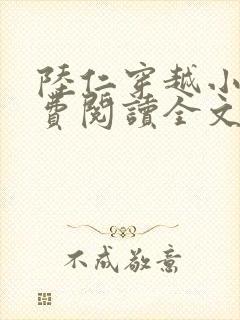 陸仁穿越小
費閱讀全文
不成敬意